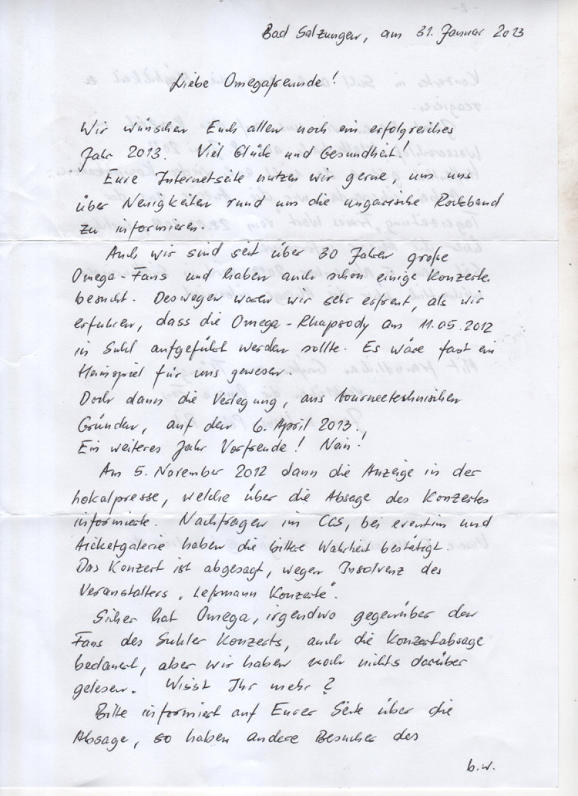 Bad Salzungen, am 31. Januar 2013
Liebe Omegafreunde!
Wir wünschen Euch allen noch ein erfolgreiches
Jahr 2013. Viel Glück und Gesundheit!
Eure Internetseite nutzen wir gerne, um uns
über Neuigkeiten rund um die ungarische Rockband
zu informieren.
Auch wir sind seit über 30 Jahren große
Omega-Fans und haben auch schon einige Konzerte
besucht. Deswegen waren wir sehr erfreut, als wir
erfuhren, dass die Omega-Rhapsody am 11.05.2012
in Suhl aufgeführt werden sollte. Es wäre fast ein
Heimspiel für uns gewesen.
Doch dann die Verlegung, aus tourneetechnischen
Gründen, auf den 6. April 2013.
Ein weiteres Jahr Vorfreude! Nein!
Am 5. November 2012 dann die Anzeige in der
Lokalpresse, welche über die Absage des Konzertes
informierte. Nachfragen im CCS, bei eventim und
ticketgalerie haben die bittere Wahrheit bestätigt.
Das Konzert ist abgesagt, wegen Insolvenz des
Veranstalters "Leßmann Konzerte".
Sicher hat Omega, irgendwo gegenüber den
Fans des Suhler Konzerts, auch die Konzertabsage
bedauert, aber wir haben noch nichts darüber
gelesen. Wisst Ihr mehr?
Bitte informiert auf Eurer Seite über die
Absage, so haben andere Besucher des
b.w.